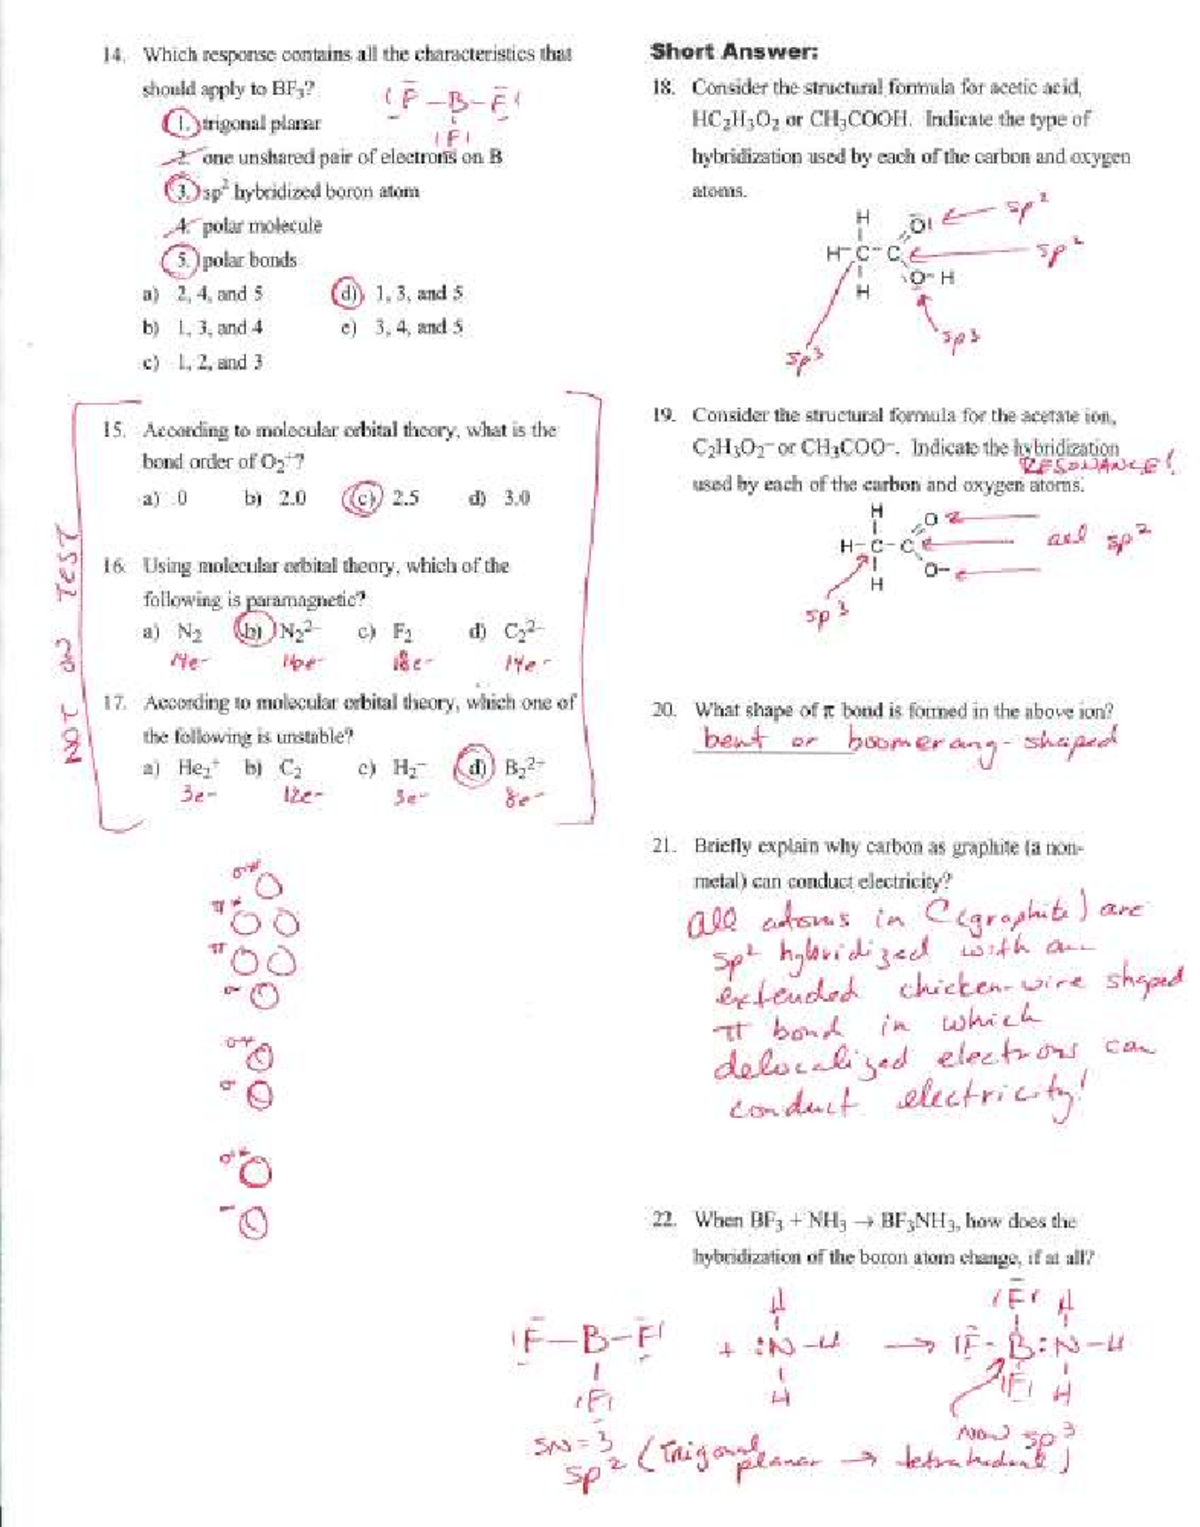 14. Which response contains all the characteristics that
should apply to BF₃?
1. trigonal planar
2. one unshared pair of electrons on B
3. sp² hybridized boron atom
4. polar molecule
5. polar bonds
a) 2, 4, and 5 d) 1, 3, and 5
b) 1, 3, and 4 e) 3, 4, and 5
c) 1, 2, and 3
F – B – F
F
NOT ON TEST
15. According to molecular orbital theory, what is the
bond order of O₂⁺?
a) 0 b) 2.0 c) 2.5 d) 3.0
16. Using molecular orbital theory, which of the
following is paramagnetic?
a) N₂ b) N₂²⁻ c) F₂ d) C₂²⁻
14e- 16e- 18e- 14e-
17. According to molecular orbital theory, which one of
the following is unstable?
a) He₂⁺ b) C₂ c) H₂⁻ d) B₂²⁺
3e- 12e- 3e- 8e-
σ*
π*
π
σ
σ*
σ
σ*
Short Answer:
18. Consider the structural formula for acetic acid,
HC₂H₃O₂ or CH₃COOH. Indicate the type of
hybridization used by each of the carbon and oxygen
atoms.
H O sp²
H-C-C sp²
H O-H
sp³ sp³
19. Consider the structural formula for the acetate ion,
C₂H₃O₂⁻ or CH₃COO⁻. Indicate the hybridization
RESONANCE!
used by each of the carbon and oxygen atoms.
H O
H-C-C all sp²
H O-
sp³
20. What shape of π bond is formed in the above ion?
bent or boomerang-shaped
21. Briefly explain why carbon as graphite (a non-
metal) can conduct electricity?
All atoms in C(graphite) are
sp² hybridized with an
extended chicken-wire shaped
π bond in which
delocalized electrons can
conduct electricity!
22. When BF₃ + NH₃ → BF₃NH₃, how does the
hybridization of the boron atom change, if at all?
H F H
F–B–F + :N–H → F–B:N–H
F H F H
SN=3 Now sp³
sp² (trigonal planar → tetrahedral)